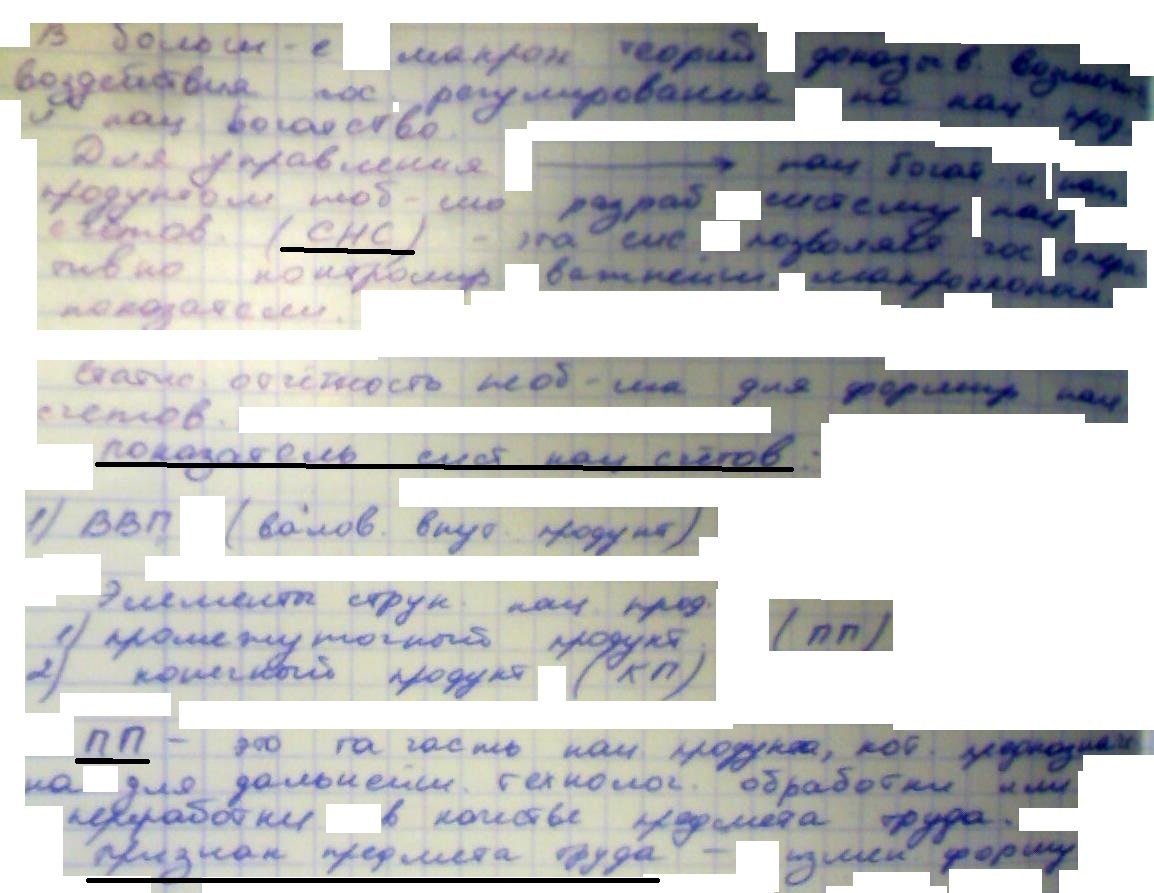 В больш-е макрон теорий доказыв. возмож
воздействия гос. регулирования на нац. прод.
и нац богатство.
Для управления → нац богат. и нац.
продуктом необ-мо разраб систему нац
счетов. (СНС) - эта сис позволяет гос опера
тивно контролир важнейш. макроэконом
показатели.
Статис. отчётность необ-ма для формир нац
счетов.
показатель сист нац счётов:
1) ВВП (валов. внут. продукт)
Элементы струк. нац прод.
1) промежуточный продукт. (ПП)
2) конечный продукт (КП)
ПП - это та часть нац продукта, кот. предназначе
на для дальнейш. технолог. обработки или
переработки в качестве предмета труда.
признак предмета труда - измен форму